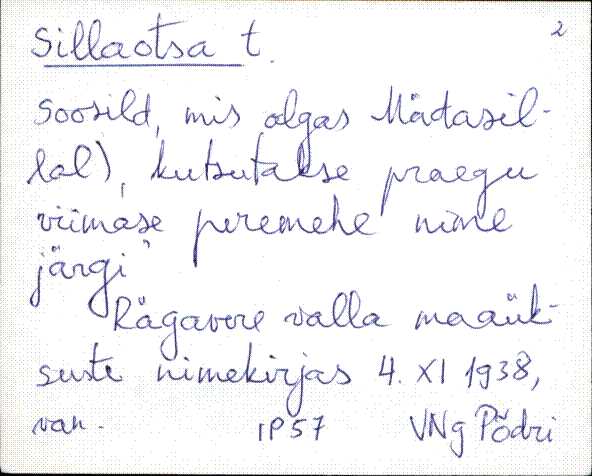 Sillaotsa t. 2
soosild, mis algas Mädasil-
lal), kutsutakse praegu
viimase peremehe nime
järgi"
Rägavere valla maaük-
suste nimekirjas 4. XI 1938,
van. IP57 VNg Põdri